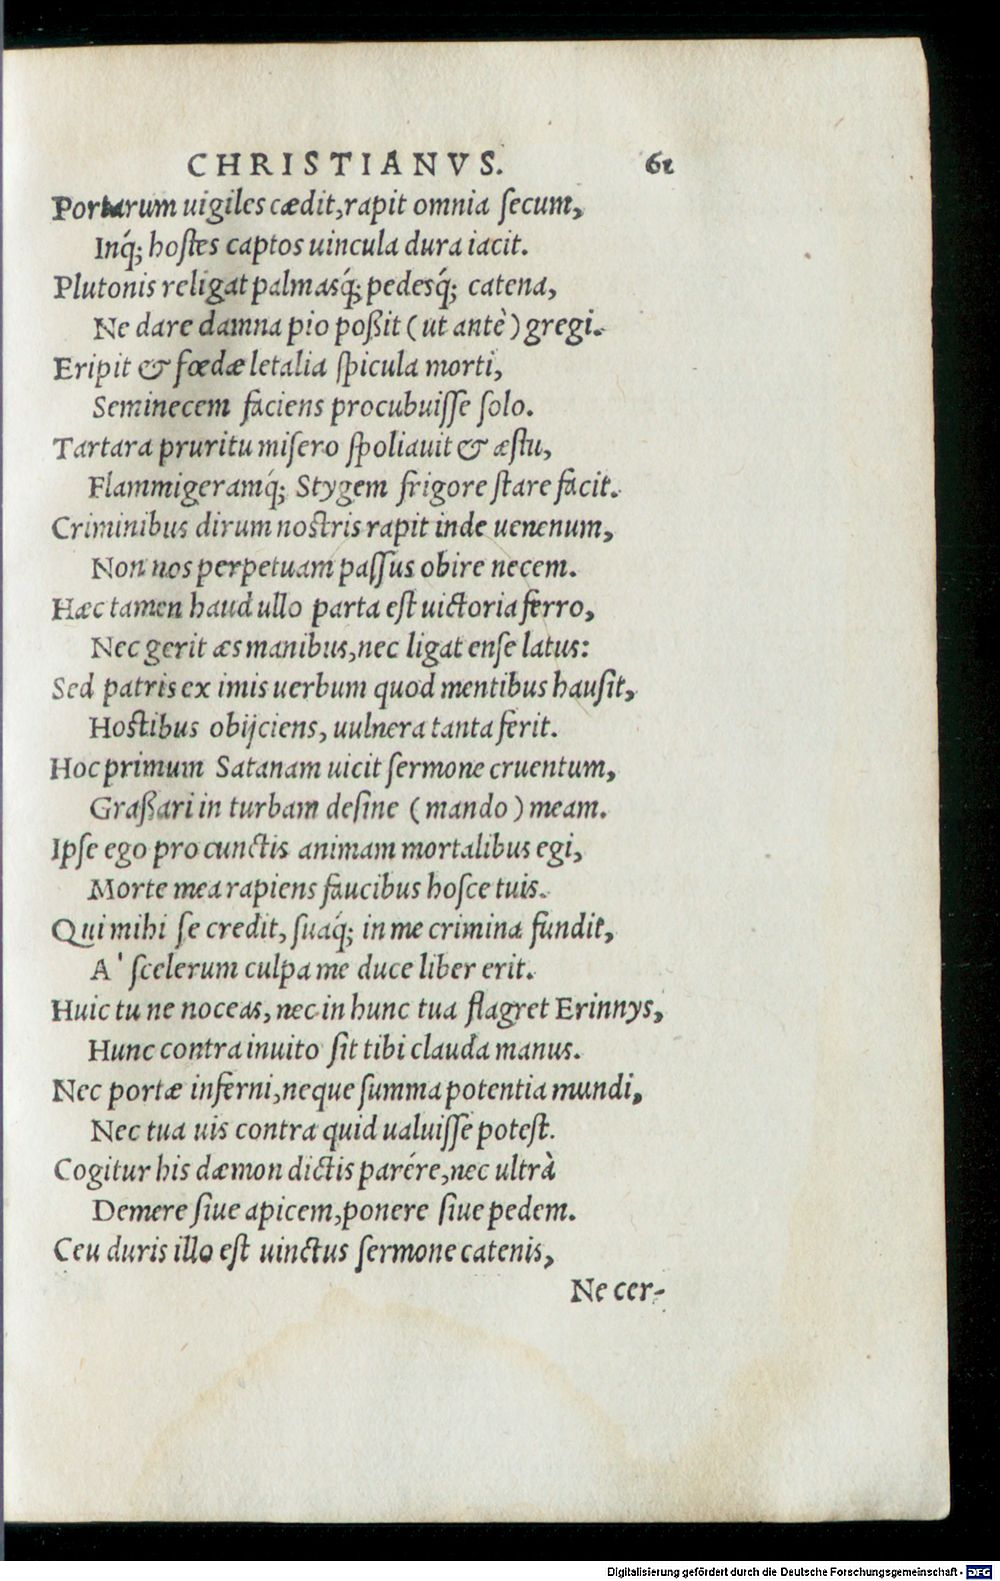 CHRISTIANVS. 61
Portarum uigiles cædit, rapit omnia ſecum,
Inq́; hoſtes captos uincula dura iacit.
Plutonis religat palmasq́; pedesq́; catena,
Ne dare damna pio poßit (ut antè) gregi.
Eripit & fœdæ letalia ſpicula morti,
Seminecem faciens procubuiſſe ſolo.
Tartara pruritu miſero ſpoliauit & æſtu,
Flammigeramq́; Stygem frigore ſtare facit.
Criminibus dirum noſtris rapit inde uenenum,
Non nos perpetuam paſſus obire necem.
Hæc tamen haud ullo parta eſt uictoria ferro,
Nec gerit æs manibus, nec ligat enſe latus:
Sed patris ex imis uerbum quod mentibus hauſit,
Hoſtibus obijciens, uulnera tanta ferit.
Hoc primum Satanam uicit ſermone cruentum,
Graßari in turbam deſine (mando) meam.
Ipſe ego pro cunctis animam mortalibus egi,
Morte mea rapiens faucibus hoſce tuis.
Qui mihi ſe credit, ſuaq́; in me crimina fundit,
A' ſcelerum culpa me duce liber erit.
Huic tu ne noceas, nec in hunc tua flagret Erinnys,
Hunc contra inuito ſit tibi clauda manus.
Nec portæ inferni, neque ſumma potentia mundi,
Nec tua uis contra quid ualuiſſe poteſt.
Cogitur his dæmon dictis parére, nec ultrà
Demere ſiue apicem, ponere ſiue pedem.
Ceu duris illo eſt uinctus ſermone catenis,
Ne cer-
Digitalisierung gefördert durch die Deutsche Forschungsgemeinschaft - DFG